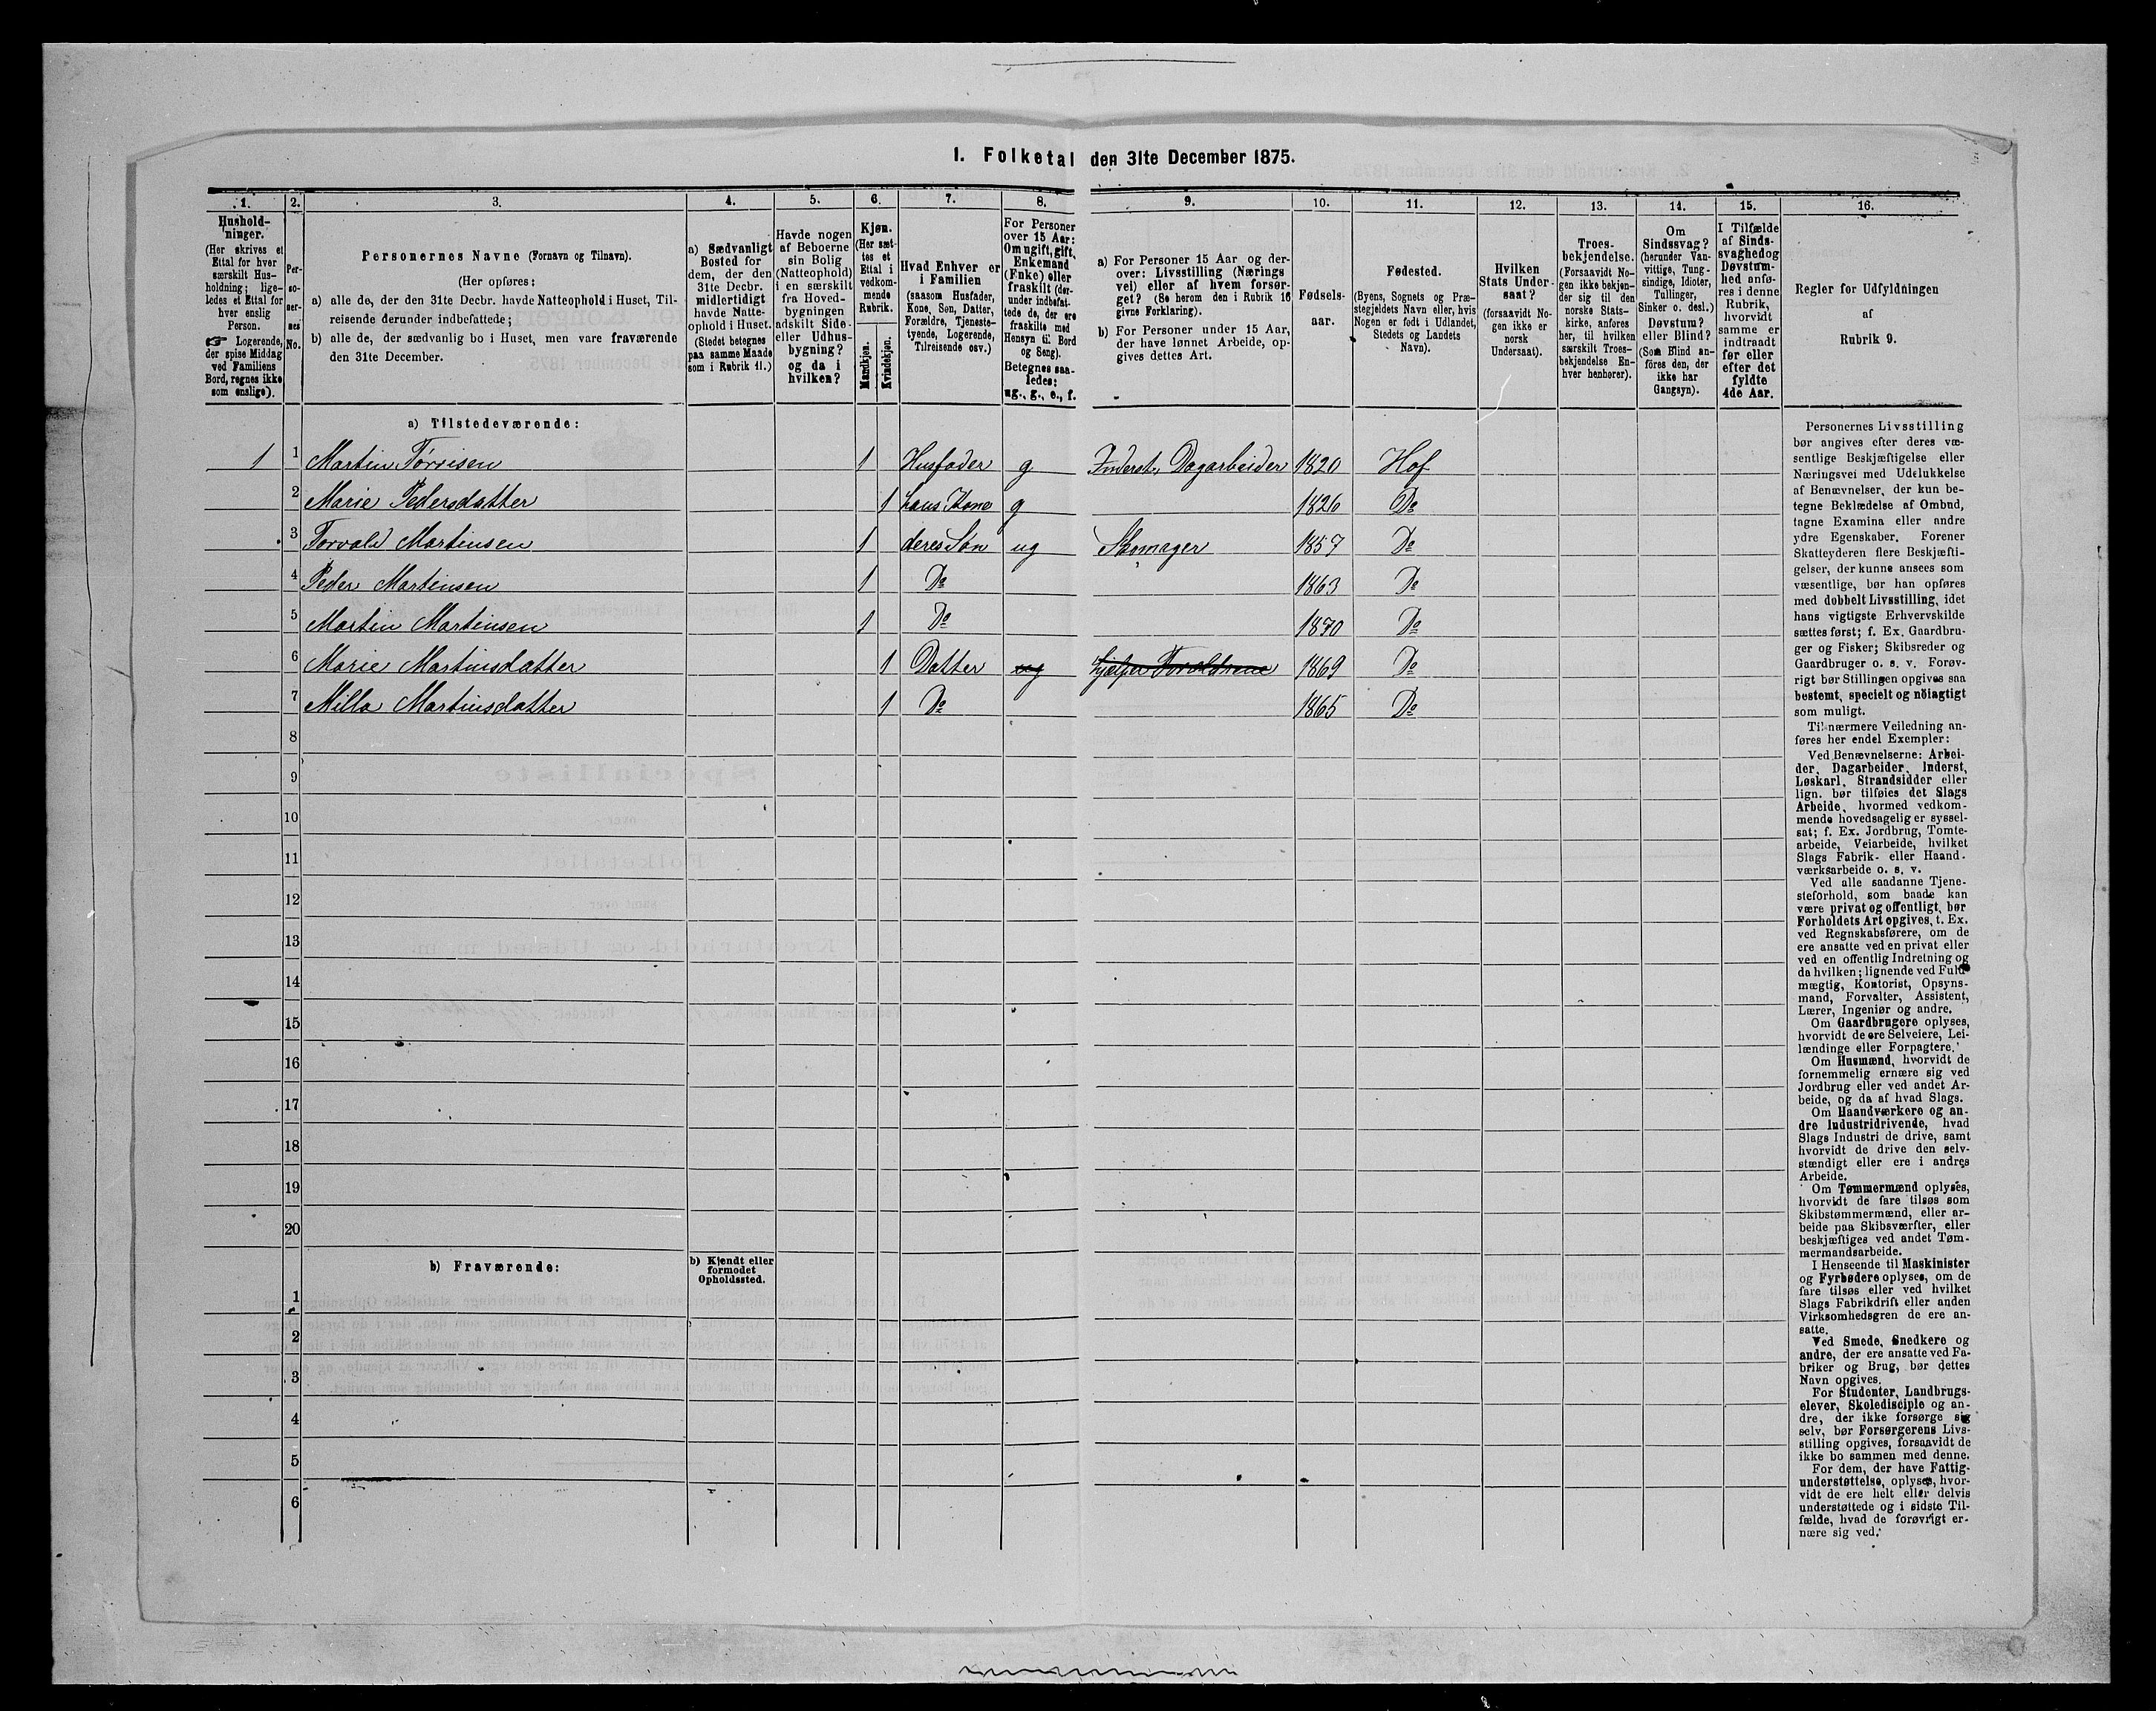 1. Folketal den 31te December 1875.
1. 2. 3. 4. 5. 6. 7. 8. 9. 10. 11. 12. 13. 14. 15. 16.
Hushold-
ninger.
(Her skrives et
Ettal for hver
særskilt Hus-
holdning; lige-
ledes et Ettal for
hver enslig
Person.
☞ Logerende,
der spise Middag
ved Familiens
Bord, regnes ikke
som enslige).
Per-
so-
ner-
nes
No.
Personernes Navne (Fornavn og Tilnavn).
(Her opføres:
a) alle de, der den 31te Decbr. havde Natteophold i Huset, Til-
reisende derunder indbefattede;
b) alle de, der sædvanlig bo i Huset, men vare fraværende
den 31te December.
a) Sædvanligt
Bosted for
dem, der den
31te Decbr.
midlertidigt
havde Natte-
ophold i Huset.
(Stedet betegnes
paa samme Maade
som i Rubrik 11.)
Havde nogen
af Beboerne
sin Bolig
(Natteophold)
i en særskilt
fra Hoved-
bygningen
adskilt Side-
eller Udhus-
bygning?
og da i
hvilken?
Kjøn.
(Her sæt-
tes et
Ettal i
vedkom-
mende
Rubrik.
Mandkjøn.
Kvindekjøn.
Hvad Enhver er
i Familien
(saasom Husfader,
Kone, Søn, Datter,
Forældre, Tjeneste-
tyende, Logerende,
Tilreisende osv.)
For Personer
over 15 Aar:
Om ugift, gift,
Enkemand
(Enke) eller
fraskilt (der-
under indbefat-
tede de, der ere
fraskilte med
Hensyn til Bord
og Seng).
Betegnes saa-
ledes:
ug., g., e., f.
a) For Personer 15 Aar og der-
over: Livsstilling (Nærings
vei) eller af hvem forsør-
get? (Se herom den i Rubrik 16
givne Forklaring).
b) For Personer under 15 Aar,
der have lønnet Arbeide, op-
gives dettes Art.
Fødsels-
aar.
Fødested.
(Byens, Sognets og Præ-
stegjeldets Navn eller, hvis
Nogen er født i Udlandet,
Stedets og Landets
Navn).
Hvilken
Stats Under-
saat?
(forsaavidt No-
gen ikke er
norsk
Undersaat).
Troes-
bekjendelse.
(Forsaavidt No-
gen ikke bekjen-
der sig til den
norske Stats-
kirke, anføres
her, til hvilken
særskilt Troes-
bekjendelse En-
hver henhører).
Om
Sindssvag?
(herunder Van-
vittige, Tung-
sindige, Idioter,
Tullinger,
Sinker o. desl.)
Døvstum?
eller Blind?
(Som Blind an-
føres den, der
ikke har
Gangsyn).
I Tilfælde
af Sinds-
svaghed og
Døvstum-
hed anfø-
res i denne
Rubrik,
hvorvidt
samme er
indtraadt
før eller
efter det
fyldte
4de Aar.
Regler for Udfyldningen
af
Rubrik 9.
a) Tilstedeværende:
1 1 Martin Tørrisen 1 Husfader g Inderst, Dagarbeider 1820 Hof
2 Marie Pedersdatter 1 hans Kone g 1826 Do
3 Torvald Martinsen 1 deres Søn ug Skomager 1857 Do
4 Peder Martinsen 1 Do 1863 Do
5 Martin Martinsen 1 Do 1870 Do
6 Marie Martinsdatter 1 Datter ug hjælper Forældrene 1869 Do
7 Milla Martinsdatter 1 Do 1865 Do
8
9
10
11
12
13
14
15
16
17
18
19
20
b) Fraværende:
b) Kjendt eller
formodet
Opholdssted.
1
2
3
4
5
6
Personernes Livsstilling
bør angives efter deres væ-
sentlige Beskjæftigelse eller
Næringsvei med Udelukkelse
af Benævnelser, der kun be-
tegne Beklædelse af Ombud,
tagne Examina eller andre
ydre Egenskaber. Forener
Skatteyderen flere Beskjæfti-
gelser, der kunne ansees som
væsentlige, bør han opføres
med dobbelt Livsstilling, idet
hans vigtigste Erhvervskilde
sættes først; f. Ex. Gaardbru-
ger og Fisker; Skibsreder og
Gaardbruger o. s. v. Forøv-
rigt bør Stillingen opgives saa
bestemt, specielt og nöiagtigt
som muligt.
Til nærmere Veiledning an-
føres her endel Exempler:
Ved Benævnelserne: Arbei-
der, Dagarbeider, Inderst,
Løskarl, Strandsidder eller
lign. bør tilføies det Slags
Arbeide, hvormed vedkom-
mende hovedsagelig er syssel-
sat; f. Ex. Jordbrug, Tomte-
arbeide, Veiarbeide, hvilket
Slags Fabrik- eller Haand-
værksarbeide o. s. v.
Ved alle saadanne Tjene-
steforhold, som baade kan
være privat og offentligt, bør
Forholdets Art opgives, t. Ex.
ved Regnskabsførere, om de
ere ansatte ved en privat eller
ved en offentlig Indretning og
da hvilken; lignende ved Fuld-
mægtig, Kontorist, Opsyns-
mand, Forvalter, Assistent,
Lærer, Ingeniør og andre.
Om Gaardbrugere oplyses,
hvorvidt de ere Selveiere, Lei-
lændinge eller Forpagtere.
Om Husmænd, hvorvidt de
fornemmelig ernære sig ved
Jordbrug eller ved andet Ar-
beide, og da af hvad Slags.
Om Haandværkere og an-
dre Industridrivende, hvad
Slags Industri de drive, samt
hvorvidt de drive den selv-
stændigt eller ere i andres
Arbeide.
Om Tømmermænd oplyses,
hvorvidt de fare tilsøs som
Skibstømmermænd, eller ar-
beide paa Skibsværfter, eller
beskjæftiges ved andet Tøm-
mermandsarbeide.
I Henseende til Maskinister
og Fyrbødere oplyses, om de
fare tilsøs eller ved hvilket
Slags Fabrikdrift eller anden
Virksomhedsgren de ere an-
satte.
Ved Smede, Snedkere og
andre, der ere ansatte ved Fa-
briker og Brug, bør dettes
Navn opgives.
For Studenter, Landbrugs-
elever, Skoledisciple og an-
dre, der ikke forsørge sig
selv, bør Forsørgerens Livs-
stilling opgives, forsaavidt de
ikke bo sammen med denne.
For dem, der have Fattig-
understøttelse, oplyses, hvor-
vidt de ere helt eller delvis
understøttede og i sidste Til-
fælde, hvad de forøvrigt er-
nære sig ved.